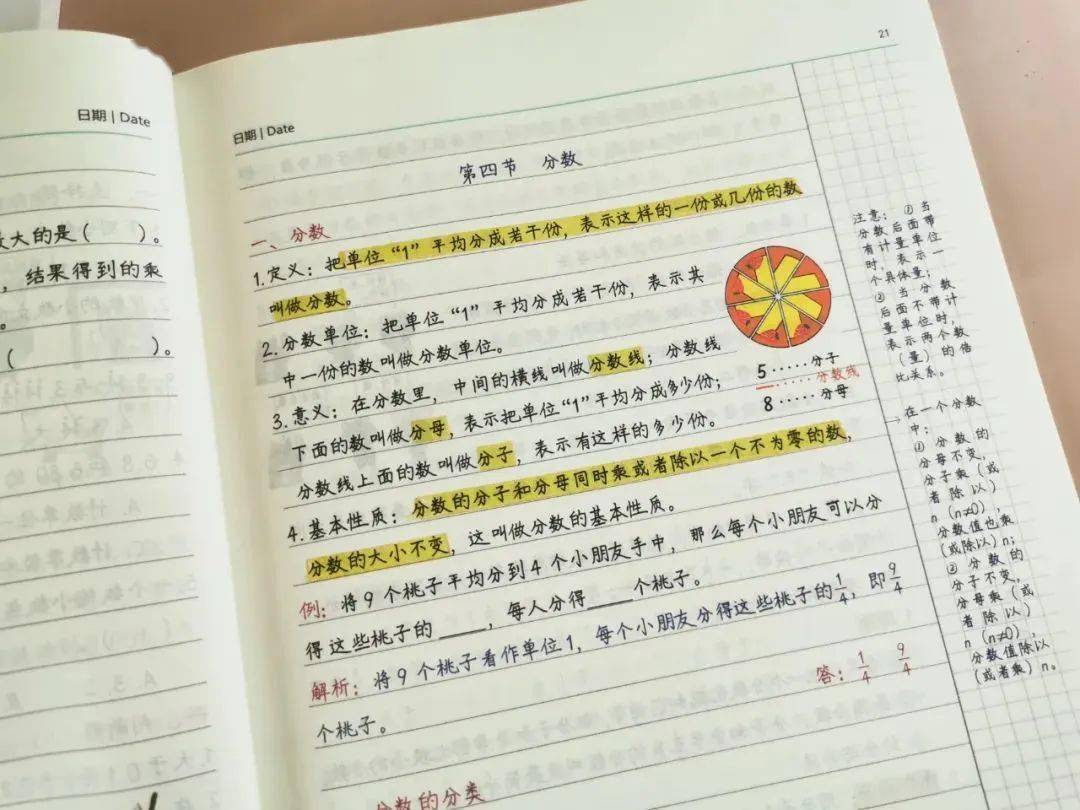 日期 | Date
大的是(  )。
，结果得到的乘
。
(  )。
21
日期 | Date
第四节 分数
一、分数
1.定义：把单位“1”平均分成若干份，表示这样的一份或几份的数
叫做分数。
2.分数单位：把单位“1”平均分成若干份，表示其
中一份的数叫做分数单位。
3.意义：在分数里，中间的横线叫做分数线；分数线
下面的数叫做分母，表示把单位“1”平均分成多少份；
分数线上面的数叫做分子，表示有这样的多少份。
5·····分子
—·····分数线
8·····分母
4.基本性质：分数的分子和分母同时乘或者除以一个不为零的数，
分数的大小不变，这叫做分数的基本性质。
例：将9个桃子平均分到4个小朋友手中，那么每个小朋友可以分
得这些桃子的____，每人分得____个桃子。
解析：将9个桃子看作单位1，每个小朋友分得这些桃子的1/4，即9/4
个桃子。
答：1/4 9/4
分数的分类
注意：①当
分数后面带
有计量单位
时，表示一
个具体量；
②当分数
后面不带计
量单位时，
表示两个数
(量)的倍
比关系。
在一个分数
中：
①分数的
分母不变，
分子乘(或
者除以)
n(n≠0)，
分数值也乘
(或除以)n；
②分数的
分子不变，
分母乘(或
者除以)
n(n≠0)，
分数值除以
(或者乘)n。